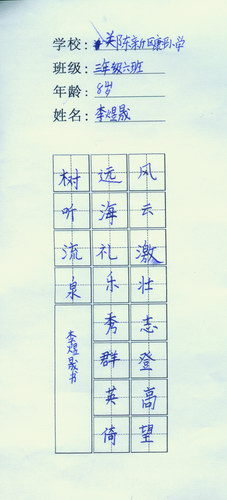 学校：关陈新区康小学
班级：三年级六班
年龄：8岁
姓名：李煜晟
风云激壮志登高望
远海礼乐秀群英倚
树听流泉
李煜晟书